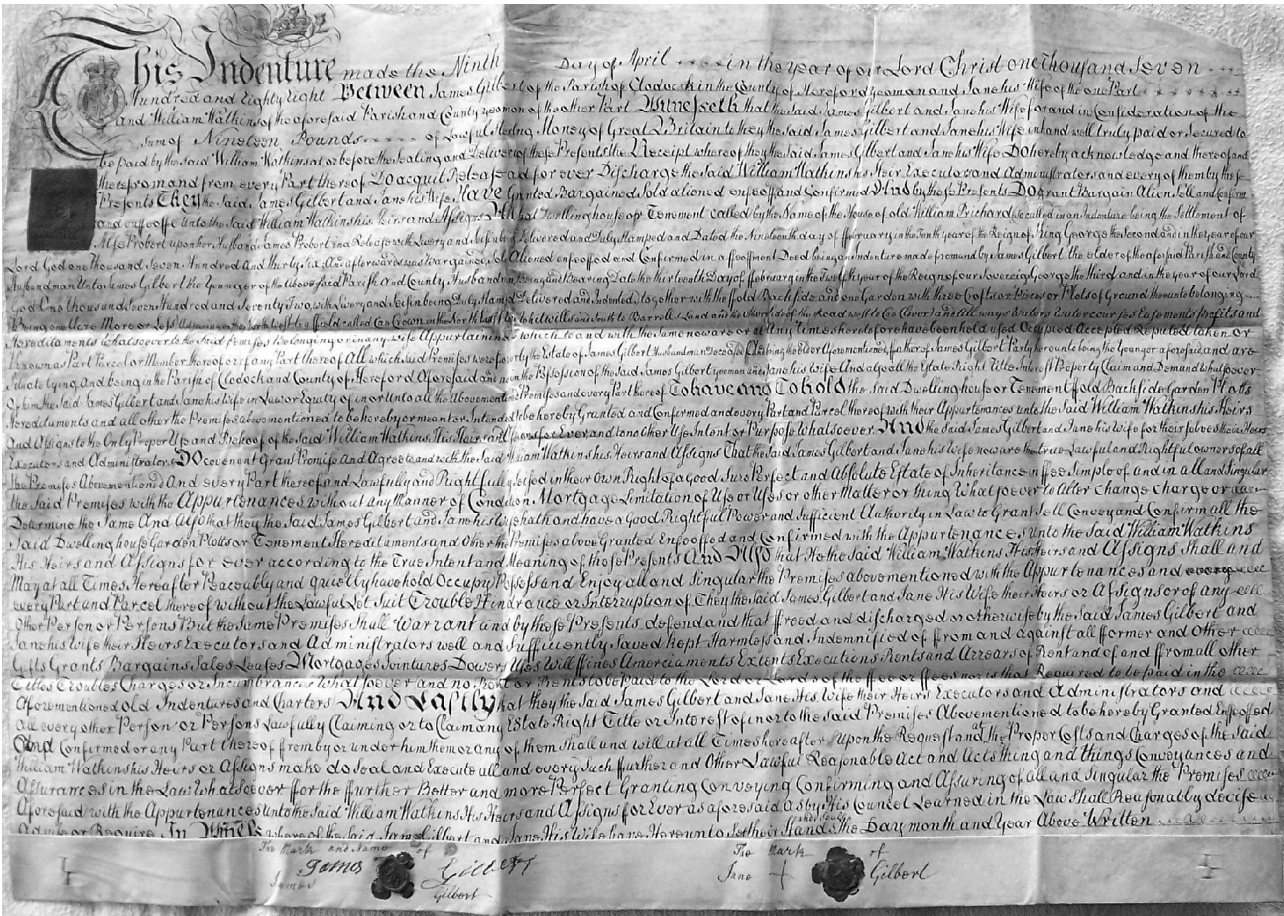 This Indenture made the Ninth Day of April in the year of our Lord Christ one Thousand Seven
Hundred and Eighty Eight Between James Gilbert of the Parish of Clodock in the County of Hereford yeoman and Jane his Wife of the one Part
And William Watkins of the aforesaid Parish and County yeoman of the other Part Witnesseth that the said James Gilbert and Jane his Wife for and in Consideration of the
Sum of Nineteen Pounds of Lawful Sterling Money of Great Britain to they the said James Gilbert and Jane his Wife in hand well truly paid or Secured to
be paid by the Said William Watkins at or before the Sealing and Delivery of these Presents the Receipt whereof they the Said James Gilbert and Jane his Wife Do hereby acknowledge and thereof and
therefrom and from every Part thereof Do acquit Release and for ever Discharge the said William Watkins his Heir Executors and Administrators and every of them by these
Presents They the said James Gilbert and Jane his Wife Have Granted Bargained Sold aliened enfeoff and Confirmed And by these Presents Do Grant Bargain Alien Sell and Confirm
and enfeoffe Unto the Said William Watkins his Heirs and Assigns All that Dwelling house or Tenement called by the Name of the House of old William Prichard so called in an Indenture being the Settlement of
Alse Probert upon her Husband James Probert in a Release with Livery and Seisin being Delivered and Duly Stamped and Dated the Nineteenth day of ffebruary in the Tenth year of the Reign of King George the Second and in the year of our
Lord God one thousand Seven Hundred And thirty Six And afterwards was Bargained Sold Aliened enfeoffed and Confirmed in a ffeoffment Deed being an Indenture made from and by James Gilbert the elder of the aforesaid Parish and County
Husbandman Unto James Gilbert the Younger of the Above said Parish And County Husbandman Being and Bearing Date the thirteenth Day of ffebruary in the Twelfth year of the Reign of our Sovereign George the Third and in the year of our Lord
God One thousand Seven Hundred and Seventy Two with Livery and Seisin being Duly Stamp'd Delivered and Indented together with the ffold Backside and one Garden with three Crofts or Pieces or Plots of Ground thereunto belonging
Being one Acre More or Less
Hereditaments Whatsoever to the Said Premises Belonging or in any wise Appurtaining or which to and with the Same now are or at any Times heretofore have been hold used Occupied Accepted Reputed taken or
Known as Part Parcel or Member thereof or of any Part thereof All which Said Premises were formerly the Estate of James Gilbert Husbandman Deceased being the Elder Aforementioned ffather of James Gilbert Party hereunto being the Younger aforesaid and are
Situate lying And being in the Parish of Clodock and County of Hereford Aforesaid and now in the Possession of the Said James Gilbert yeoman and Jane his Wife And also all the Estate Right Title Interest Property Claim and Demand Whatsoever
Of him the Said James Gilbert and Jane his Wife in Law or Equity of in or Unto all the Abovementioned Premises and every Part thereof To have and To hold the Said Dwelling house or Tenement ffold Backside Garden Plotts
Hereditaments and all other the Premises abovementioned to be hereby or meant or Intended to be hereby Granted and Confirmed and every Part and Parcel thereof with their Appurtenances unto the Said William Watkins his Heirs
And Assigns to the Only Proper Use and Behoof of the Said William Watkins His Heirs and Assigns for Ever and to no other Use Intent or Purpose Whatsoever And the Said James Gilbert and Jane his Wife for their selves their Heirs
Executors and Administrators Do covenant Grant Promise And Agree to and with the Said William Watkins his Heirs and Assigns That the Said James Gilbert and Jane his Wife now are the true Lawful and Rightful owners of all
the Premises Abovementioned And every Part thereof and Lawfully and Rightfully Seised in their Own Right of a Good Sure Perfect and Absolute Estate of Inheritance in ffee Simple of and in all and Singular
the Said Premises with the Appurtenances Without any Manner of Condition Mortgage Limitation of Use or Uses or other Matter or thing Whatsoever to Alter Change Charge or
Determine the Same And Also that they the Said James Gilbert and Jane his Wife hath and have a Good Rightful Power and Sufficient Authority in Law to Grant Sell Convey and Confirm all the
Said Dwelling house Garden Plotts or Tenement Hereditaments and Other the Premises above Granted Enfeoffed and Confirmed with the Appurtenances Unto the Said William Watkins
His Heirs and Assigns for ever according to the True Intent and Meaning of those Presents And Also that He the Said William Watkins His Heirs and Assigns Shall and
May at all Times Hereafter Peaceably and quietly have hold Occupy Possess and Enjoy all and Singular the Premises abovementioned with the Appurtenances and
every Part and Parcel thereof without the Lawful Let Suit Trouble Hindrance or Interruption of They the Said James Gilbert and Jane His Wife their Heirs or Assigns or of any
Other Person or Persons But the Same Premises Shall Warrant and by these Presents defend and that ffreed and discharged or otherwise by the Said James Gilbert and
Jane his Wife their Heirs Executors and Administrators well and Sufficiently Saved kept Harmless and Indemnified of from and against all fformer and Other
Gifts Grants Bargains Sales Leases Mortgages Jointures Dowers Uses Will ffines Amerciaments Extents Executions Rents and Arrears of Rent and of and ffrom all other
Titles Troubles Charges or Incumbrances Whatsoever and no Rent or Rents to be paid to the Lord or Lords of the ffee or ffees nor is that Required to be paid in the
Aforementioned old Indentures and Charters And Lastly that they the Said James Gilbert and Jane His Wife their Heirs Executors and Administrators and
all every other Person or Persons Lawfully Claiming or to Claim any Estate Right Title or Interest of in or to the Said Premises Abovementioned to be hereby Granted Enfeoffed
And Confirmed or any Part thereof from by or under him them or any of them Shall and will at all Times hereafter Upon the Request and the Proper Costs and Charges of the Said
William Watkins his Heirs or Assigns make do Seal and Execute all and every Such ffurther and Other Lawful Reasonable Act and Acts thing and things Conveyances and
Assurances in the Law Whatsoever for the ffurther Better and more Perfect Granting Conveying Confirming and Assuring of all and Singular the Premises
Aforesaid with the Appurtenances Unto the Said William Watkins His Heirs and Assigns for Ever as aforesaid as by His Councel Learned in the Law Shall Reasonably devise
Advise or Require In Witness whereof the Said James Gilbert and Jane His Wife have Hereunto Set their Hands and Seals the Day month and Year Above Written
The Mark and Name of
James Gilbert
James Gilbert
The Mark of
Jane + Gilbert